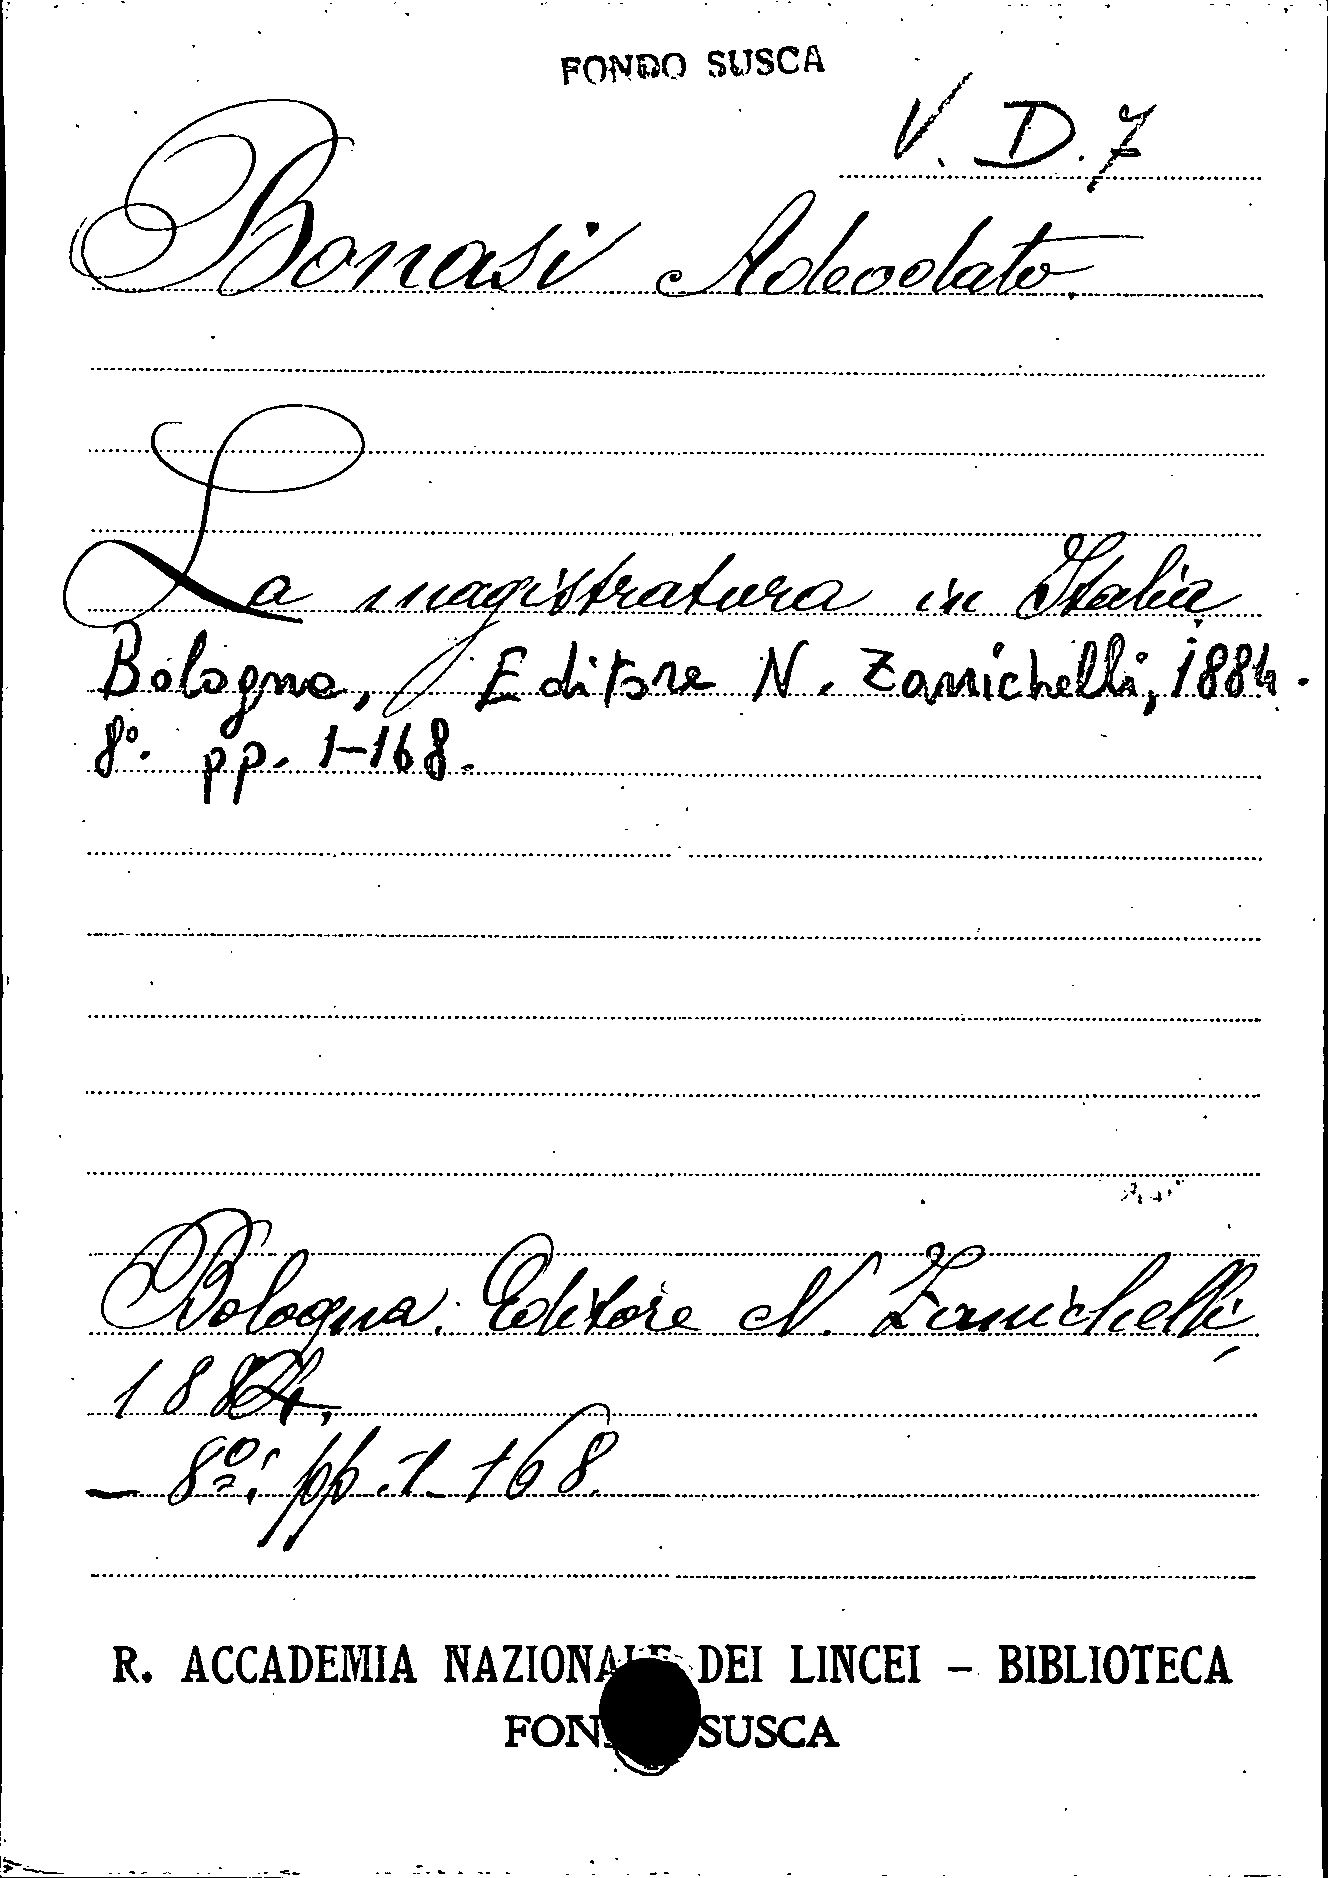 FONDO SUSCA
V. D. 7
Bonasi Adeodato.
La magistratura in Italia
Bologna, Editore N. Zanichelli, 1884.
8°. pp. 1-168.
Bologna. Editore N. Zanichelli,
1884.
– 8º: pp. 1-168.
R. ACCADEMIA NAZIONALE DEI LINCEI – BIBLIOTECA
FONDO SUSCA